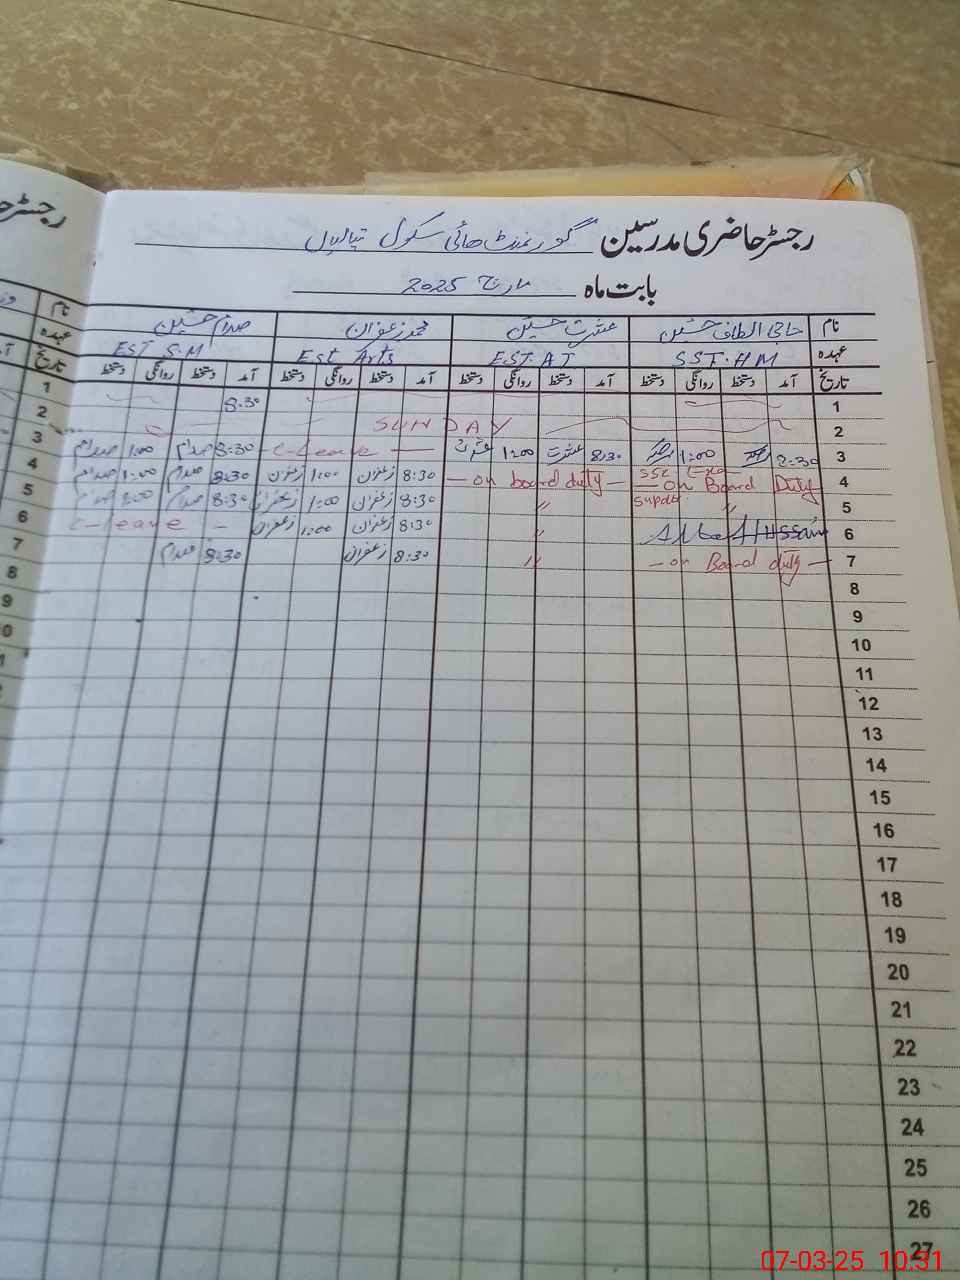 رجسٹر حاضری مدرسین گورنمنٹ ہائی سکول
بابت ماہ مارچ 2025
نام حاجی الطاف حسین عشرت حسین محمد زعفران صدام حسین
عہدہ SST.HM EST.AT Est Arts EST S.M
تاریخ آمد دستخط روانگی دستخط آمد دستخط روانگی دستخط آمد دستخط روانگی دستخط آمد دستخط روانگی دستخط
1 8:30
2 SUNDAY
3 8:30 1:00 8:30 عشرت 1:00 عشرت C-leave 8:30 صدام 1:00 صدام
4 SSC - On Board Duty - on board duty - 8:30 زعفران 1:00 زعفران 8:30 صدام 1:00 صدام
5 " " 8:30 زعفران 1:00 زعفران 8:30 صدام 1:00 صدام
6 " 8:30 زعفران 1:00 زعفران C-leave -
7 - on Board duty - " 8:30 زعفران 8:30 صدام
8
9
10
11
12
13
14
15
16
17
18
19
20
21
22
23
24
25
26
27
رجسٹر
نام
عہدہ
تاریخ
1
2
3
4
5
6
7
8
9
07-03-25 10:31